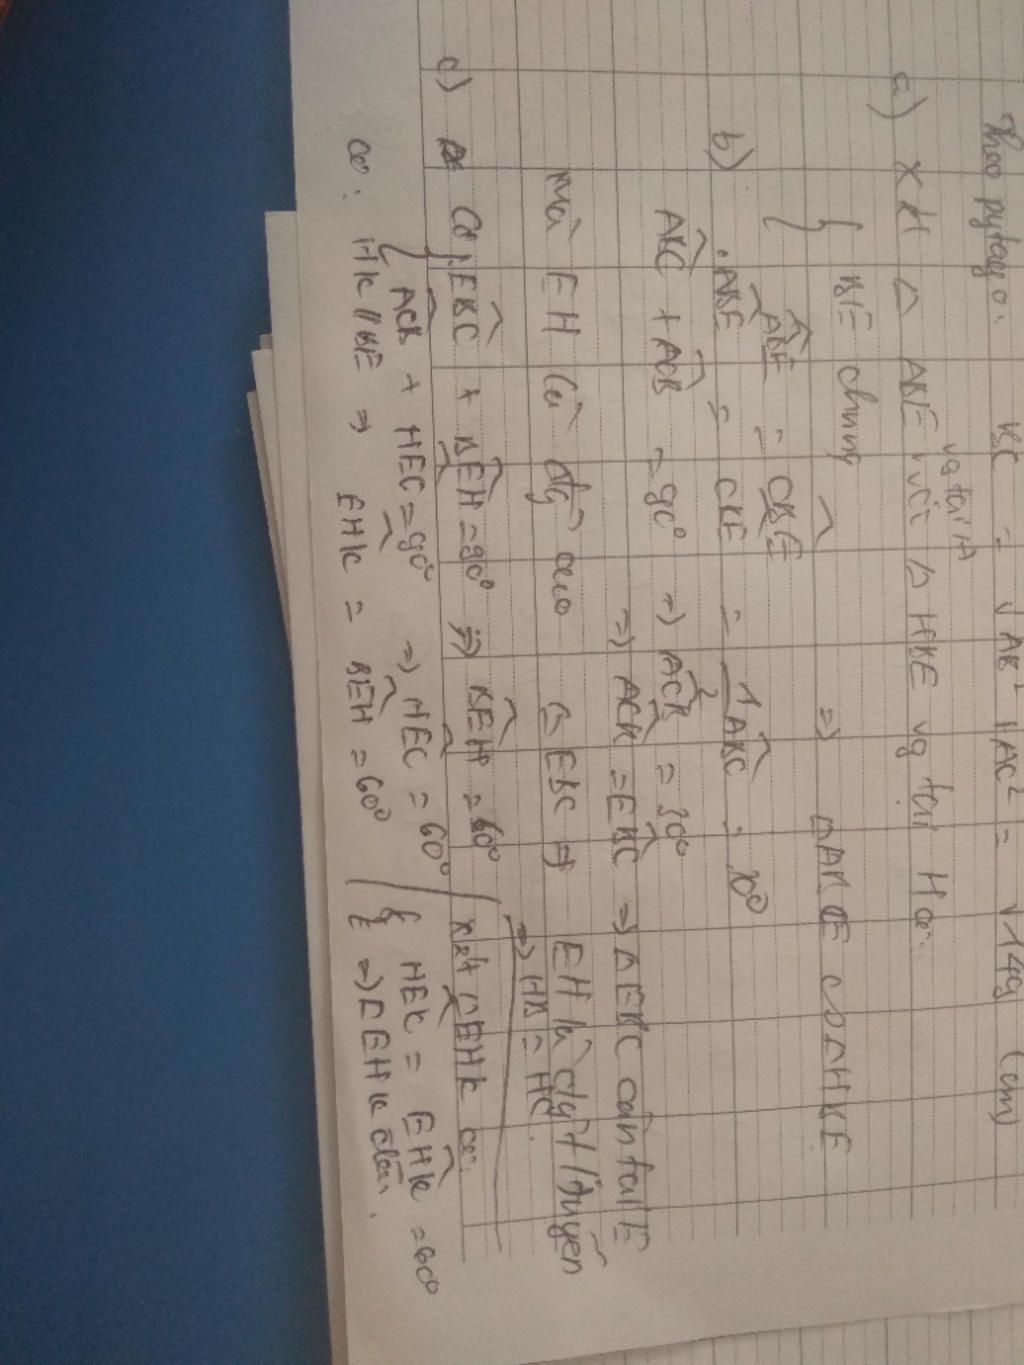 Theo pytago: BC = √AB² + AC² = √149 (cm)
a) Xét △ ABE vg tại A với △ HBE vg tại H có:
{ BE chung
ABE = CBE ⇒ △ABE ∽ △HBE
b) ABE = CBE = 1/2 ABC = 30°
ABC + ACB = 90° ⇒ ACB = 30°
⇒ ACB = EBC ⇒ △EBC cân tại E
Mà EH là đg cao △EBC ⇒ EH là đg t/tuyến
⇒ HB = HC.
c) Có EBC + BEH = 90° ⇒ BEH = 60°
ACB + HEC = 90° ⇒ HEC = 60°
có: HK // BE ⇒ EHK = BEH = 60°
Xét △EHK có:
{ HEK = EHK = 60°
⇒ △EHK đều.